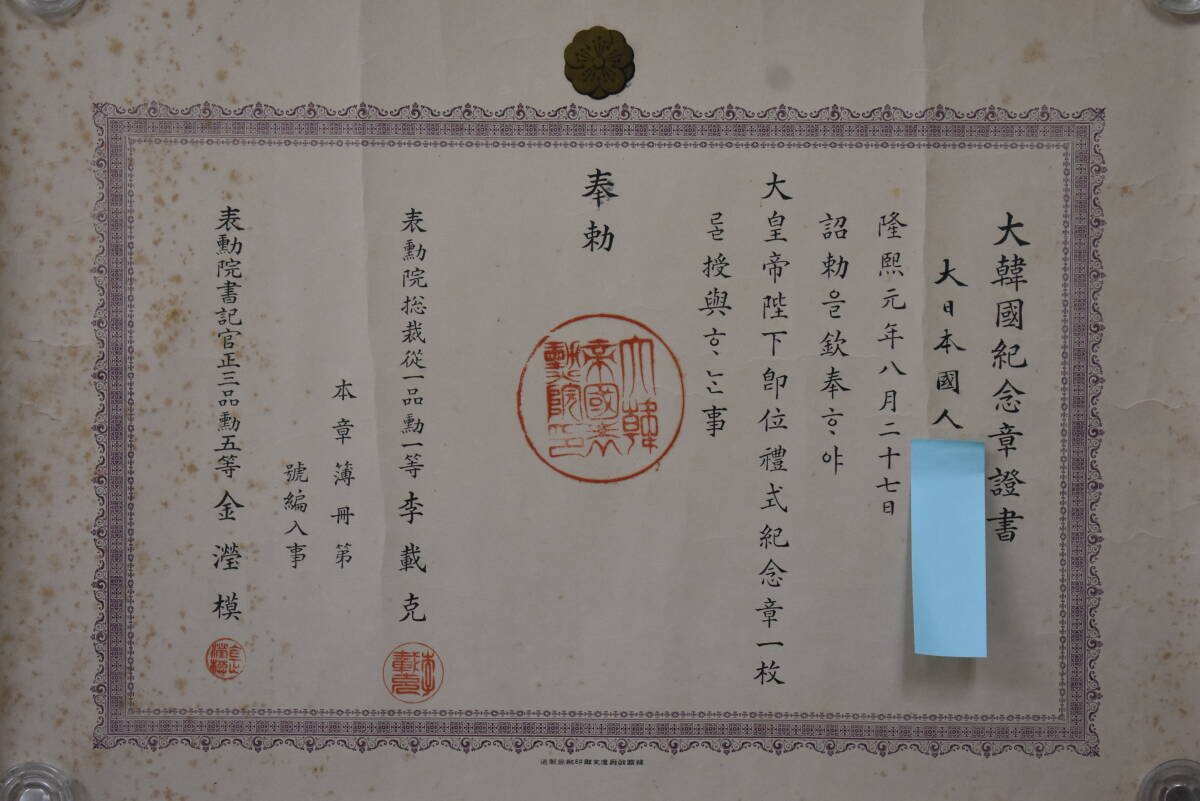 大韓國紀念章證書
大日本國人
隆熙元年八月二十七日
詔勅을欽奉ᄒᆞ야
大皇帝陛下卽位禮式紀念章一枚
를授與ᄒᆞᄂᆞᆫ事
奉勅
大韓
帝國表
勳院印
表勳院総裁從一品勳一等李載克
李
載克
本章簿冊第
號編入事
表勳院書記官正三品勳五等金瀅模